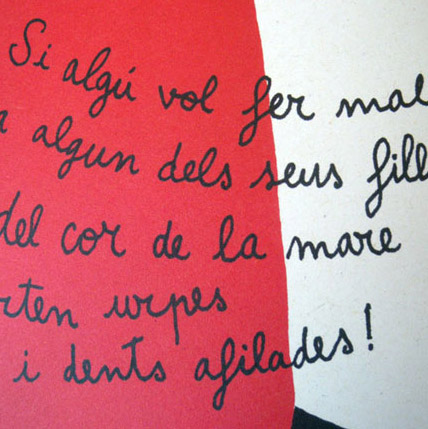 Si algú vol fer mal
a algun dels seus fill
del cor de la mare
rten urpes
i dents afilades!